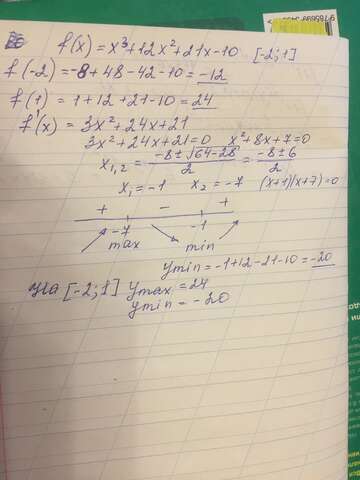 f(x) = x³+12x²+21x-10 [-2;1]
f(-2)=-8+48-42-10=-12
f(1) = 1+12+21-10=24
f'(x) = 3x²+24x+21
3x²+24x+21=0 x²+8x+7=0
x₁,₂ = (-8±√64-28)/2 = (-8±6)/2
x₁=-1 x₂=-7 (x+1)(x+7)=0
+ - +
-7 -1
max min
ymin=-1+12-21-10=-20
На [-2;1] ymax=24
ymin=-20